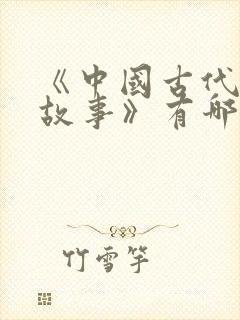 《中國古代
故事》有哪
竹雪竿